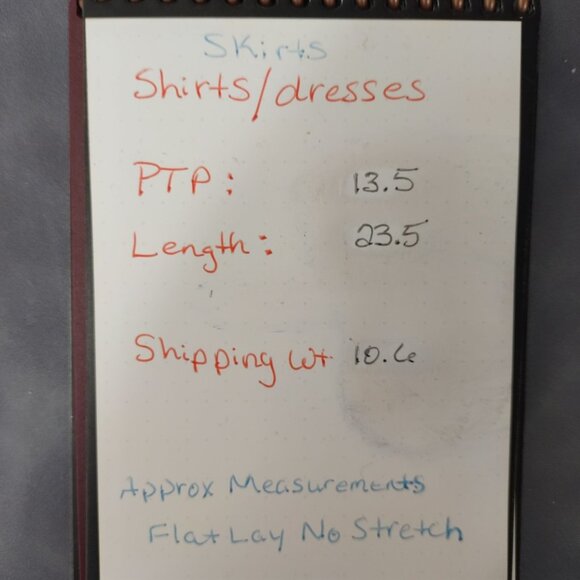 Skirts
Shirts/dresses
PTP: 13.5
Length: 23.5
Shipping Wt 10.6
Approx Measurements
Flat Lay No Stretch